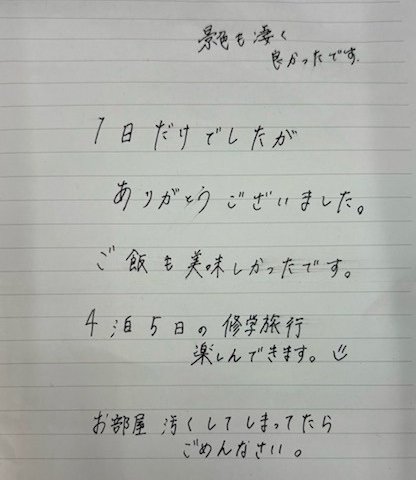 景色も凄く
良かったです.
1日だけでしたが
ありがとうございました。
ご飯も美味しかったです。
4泊5日の修学旅行
楽しんできます。
お部屋 汚くしてしまってたら
ごめんなさい。